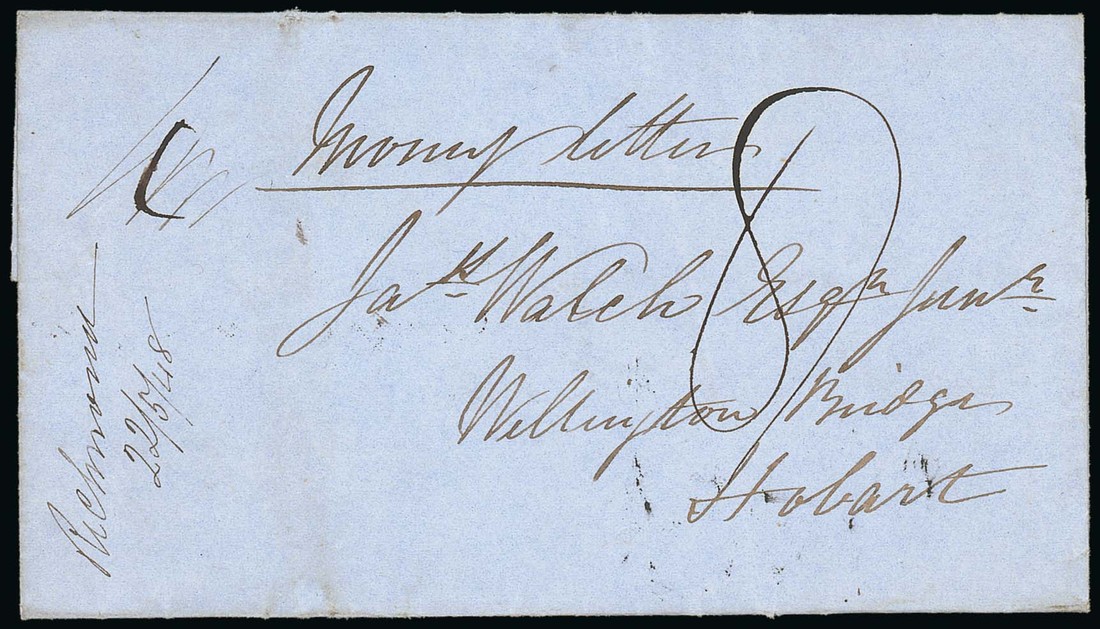 Money letter
8
Jas Walch Esqr Junr
Wellington Bridge
Hobart
Richmond
22/5/48